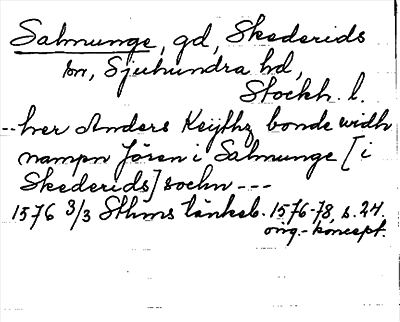 Salmunge, gd, Skederids
sn, Sjuhundra hd,
Stockh. l.
--her Anders Keijthz bonde widh
nampn Jören i Salmunge [i
Skederids] sochn ---
1576 3/3 Sthms tänkeb. 1576-78, s. 24.
orig.-koncept.